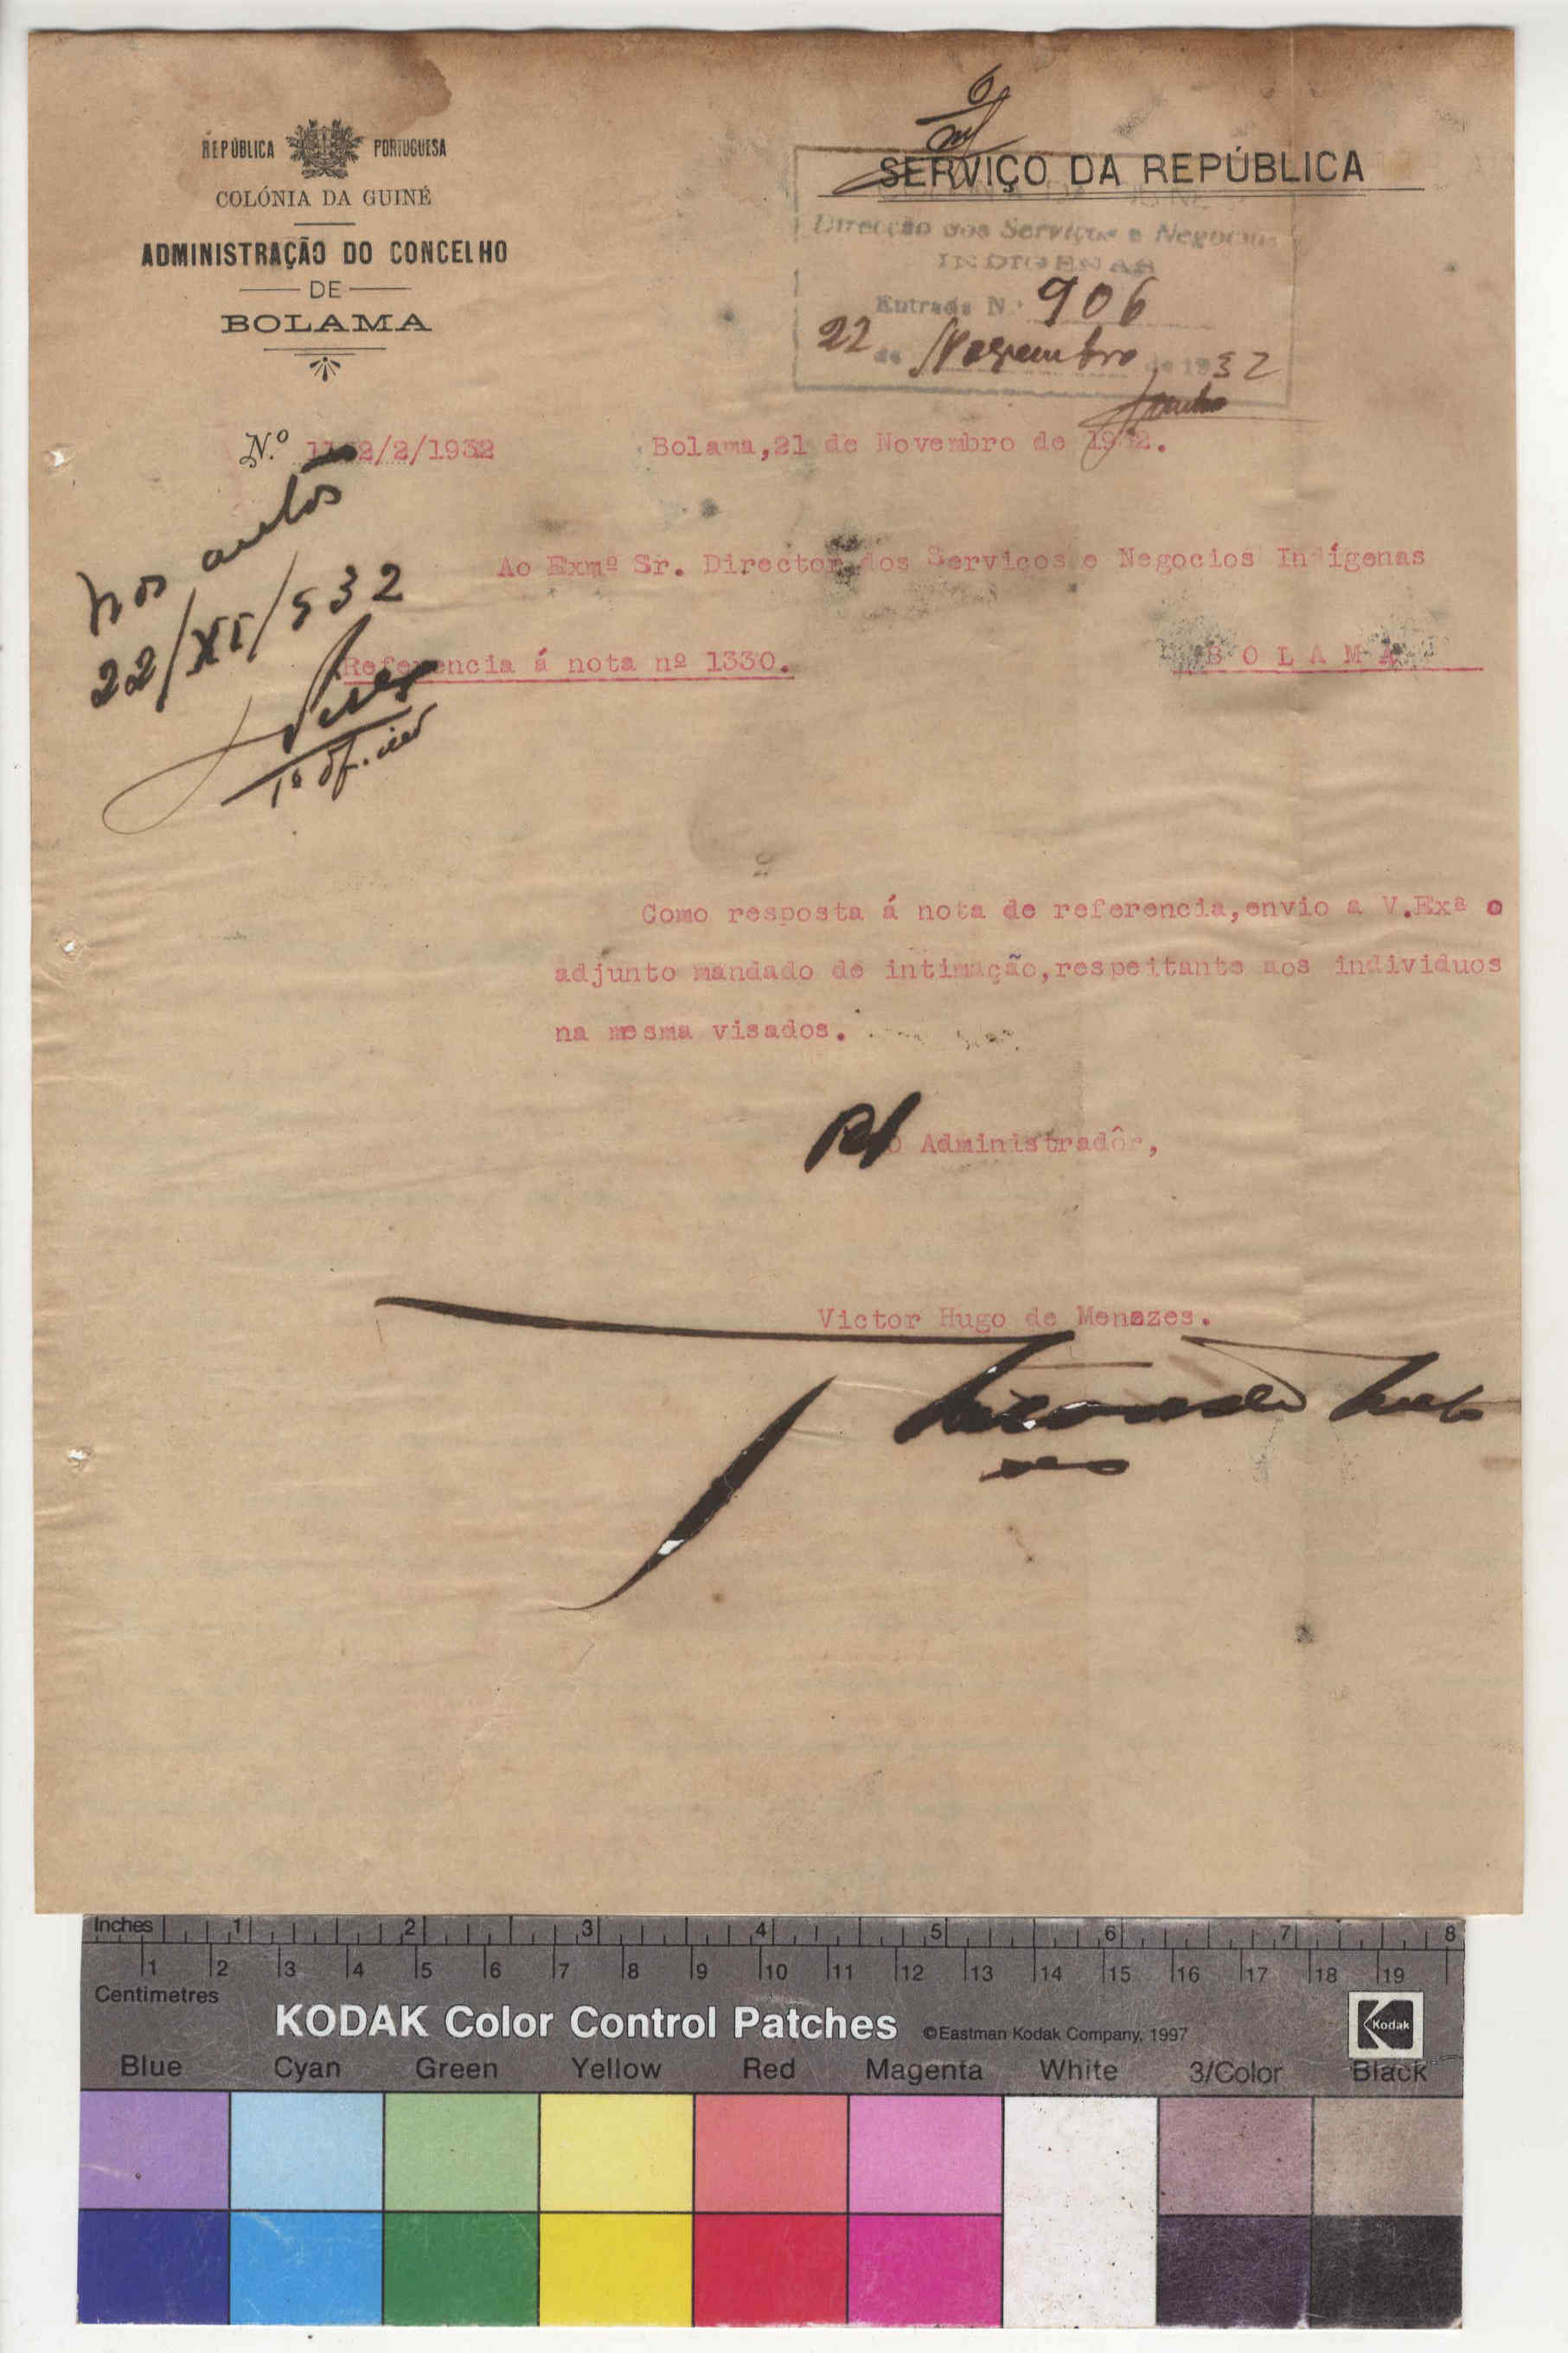 REPÚBLICA PORTUGUESA
COLÓNIA DA GUINÉ
ADMINISTRAÇÃO DO CONCELHO
DE
BOLAMA
SERVIÇO DA REPÚBLICA
Direcção dos Serviços e Negocios
INDIGENAS
Entrada N.º 906
22 de Novembro de 1932
N.º 2/2/1932
Bolama,21 de Novembro de 1932.
Nos autos
22/XI/932
1º Oficial
Ao Exmº Sr. Director dos Serviços e Negocios Indígenas
Referencia á nota nº 1330.
B O L A M A
Como resposta á nota de referencia,envio a V.Exª o
adjunto mandado de intimação,respeitante aos individuos
na mesma visados.
o Administradôr,
Victor Hugo de Menezes.
Inches 1 2 3 4 5 6 7 8
1 2 3 4 5 6 7 8 9 10 11 12 13 14 15 16 17 18 19
Centimetres
KODAK Color Control Patches ©Eastman Kodak Company, 1997 Kodak
Blue Cyan Green Yellow Red Magenta White 3/Color Black